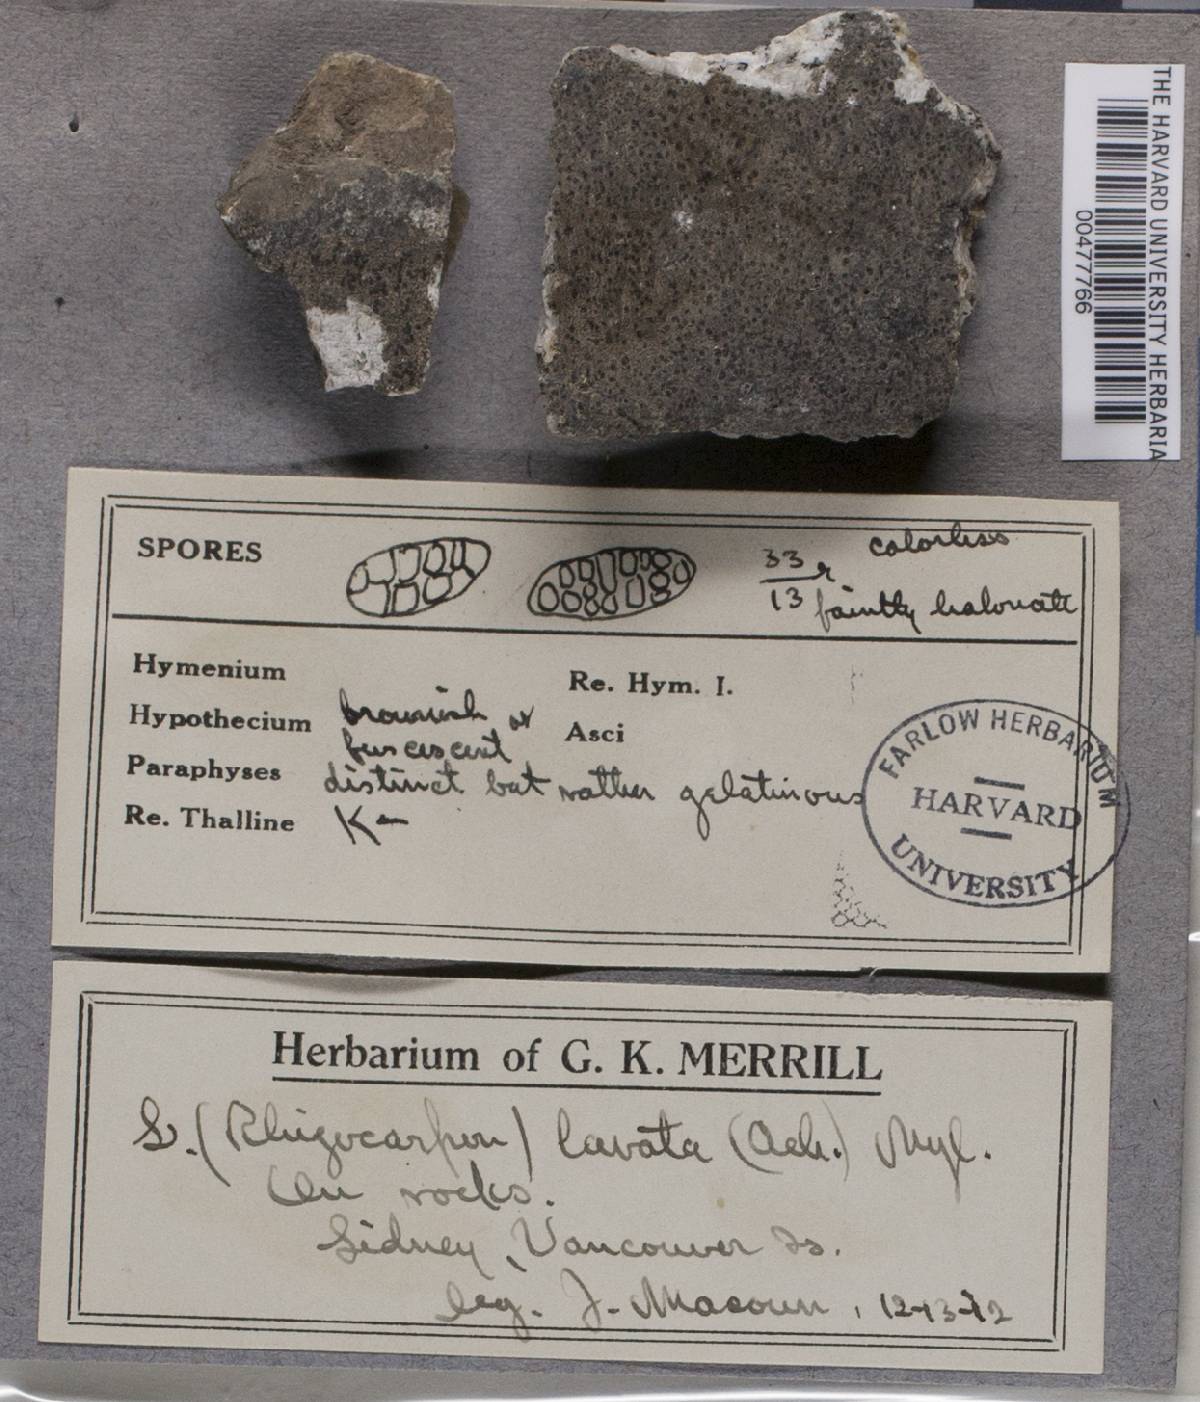 THE HARVARD UNIVERSITY HERBARIA
00477766
SPORES
33 colorless
13 faintly halonate
Hymenium
Re. Hym. I.
Hypothecium brownish or
fuscescent
Asci
Paraphyses distinct but rather gelatinous
Re. Thalline K-
FARLOW HERBARIUM
HARVARD
UNIVERSITY
Herbarium of G. K. MERRILL
L. (Rhizocarpon) lavata (Ach.) Nyl.
On rocks.
Sidney, Vancouver Is.
leg. J. Macoun, 12-13-12